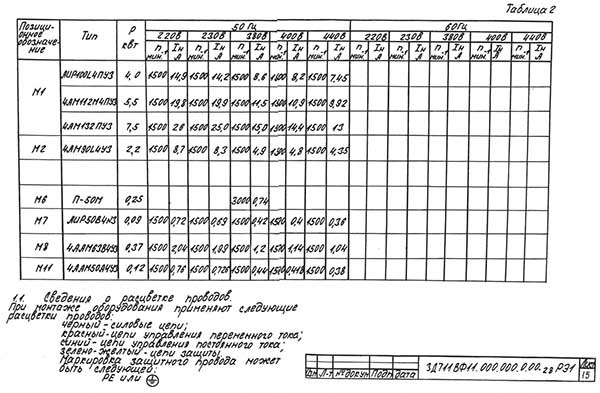 Таблица 2
Позици-онное обозначе-ние Тип P кВт 50 Гц 60 Гц
220В 230В 380В 400В 440В 220В 230В 380В 400В 440В
n мин.-1 Iн А n мин.-1 Iн А n мин.-1 Iн А n мин.-1 Iн А n мин.-1 Iн А n мин.-1 Iн А n мин.-1 Iн А n мин.-1 Iн А n мин.-1 Iн А n мин.-1 Iн А
М1 АИР100L4ПУЗ 4,0 1500 14,9 1500 14,2 1500 8,6 1500 8,2 1500 7,45
4АМ112М4ПУЗ 5,5 1500 19,8 1500 19,9 1500 11,5 1500 10,9 1500 9,92
4АМ132ПУЗ 7,5 1500 26 1500 25,0 1500 15,0 1500 14,4 1500 13
М2 4АМ90L4УЗ 2,2 1500 8,7 1500 8,3 1500 4,9 1500 4,8 1500 4,35
М6 П-50М 0,25 3000 0,74
М7 АИР50В4УЗ 0,09 1500 0,72 1500 0,69 1500 0,42 1500 0,4 1500 0,36
М8 4ААМ63В4УЗ 0,37 1500 2,04 1500 1,99 1500 1,2 1500 1,14 1500 1,04
М11 4ААМ50А4УЗ 0,12 1500 0,76 1500 0,726 1500 0,44 1500 0,418 1500 0,38
1.1. Сведения о расцветке проводов.
При монтаже оборудования применяют следующие
расцветки проводов:
черный-силовые цепи;
красный-цепи управления переменного тока;
синий-цепи управления постоянного тока;
зелено-желтый-цепи защиты.
Маркировка защитного провода может
быть следующей:
РЕ или
Изм Л-т № докум Подп дата 3Д711ВФ11.000.000.0.00.28 РЭ1 Лист 15